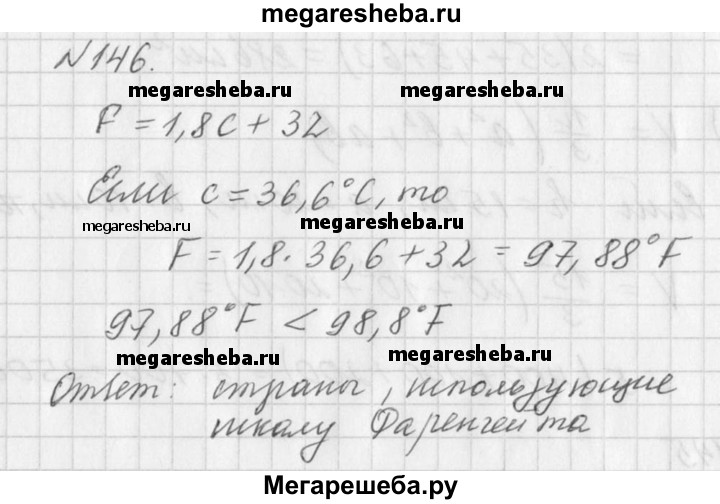 megaresheba.com
№146.
megaresheba.com megaresheba.com
F = 1,8C + 32
Если c = 36,6°C, то
megaresheba.com megaresheba.com
F = 1,8 · 36,6 + 32 = 97,88°F
97,88°F < 98,8°F
megaresheba.com megaresheba.com
Ответ: страны, использующие
шкалу Фаренгейта
Мегарешеба.ру